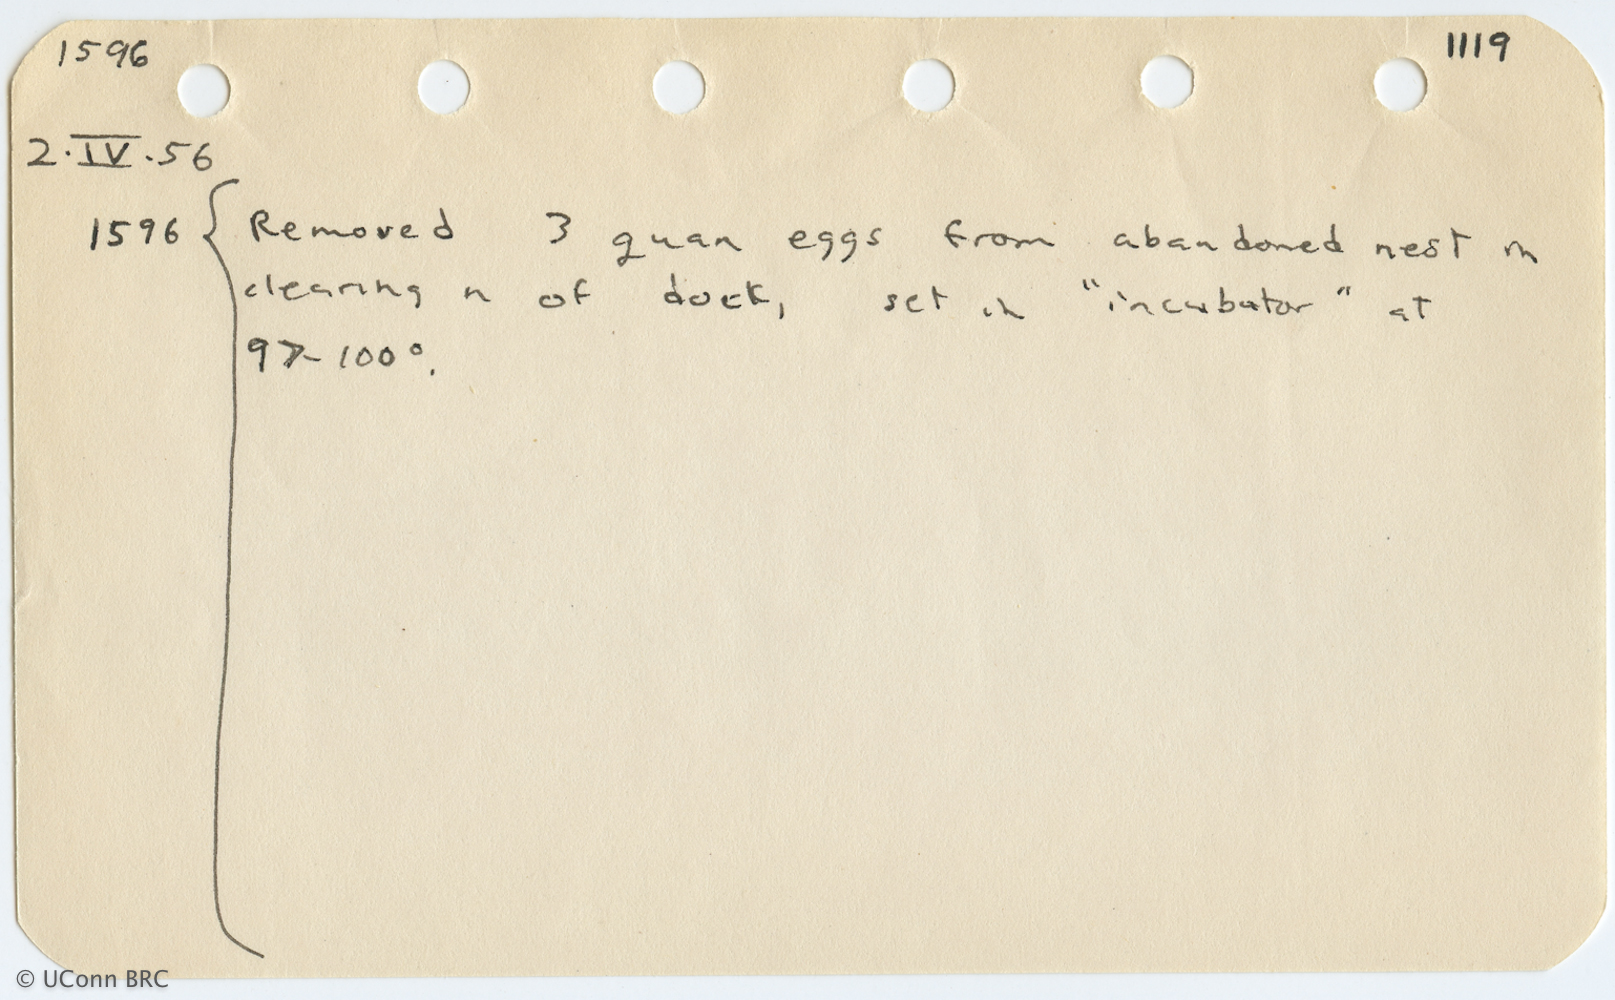 1596
1119
2·IV·56
1596 { Removed 3 guan eggs from abandoned nest in
clearing n of dock, set in "incubator" at
97-100°.
© UConn BRC